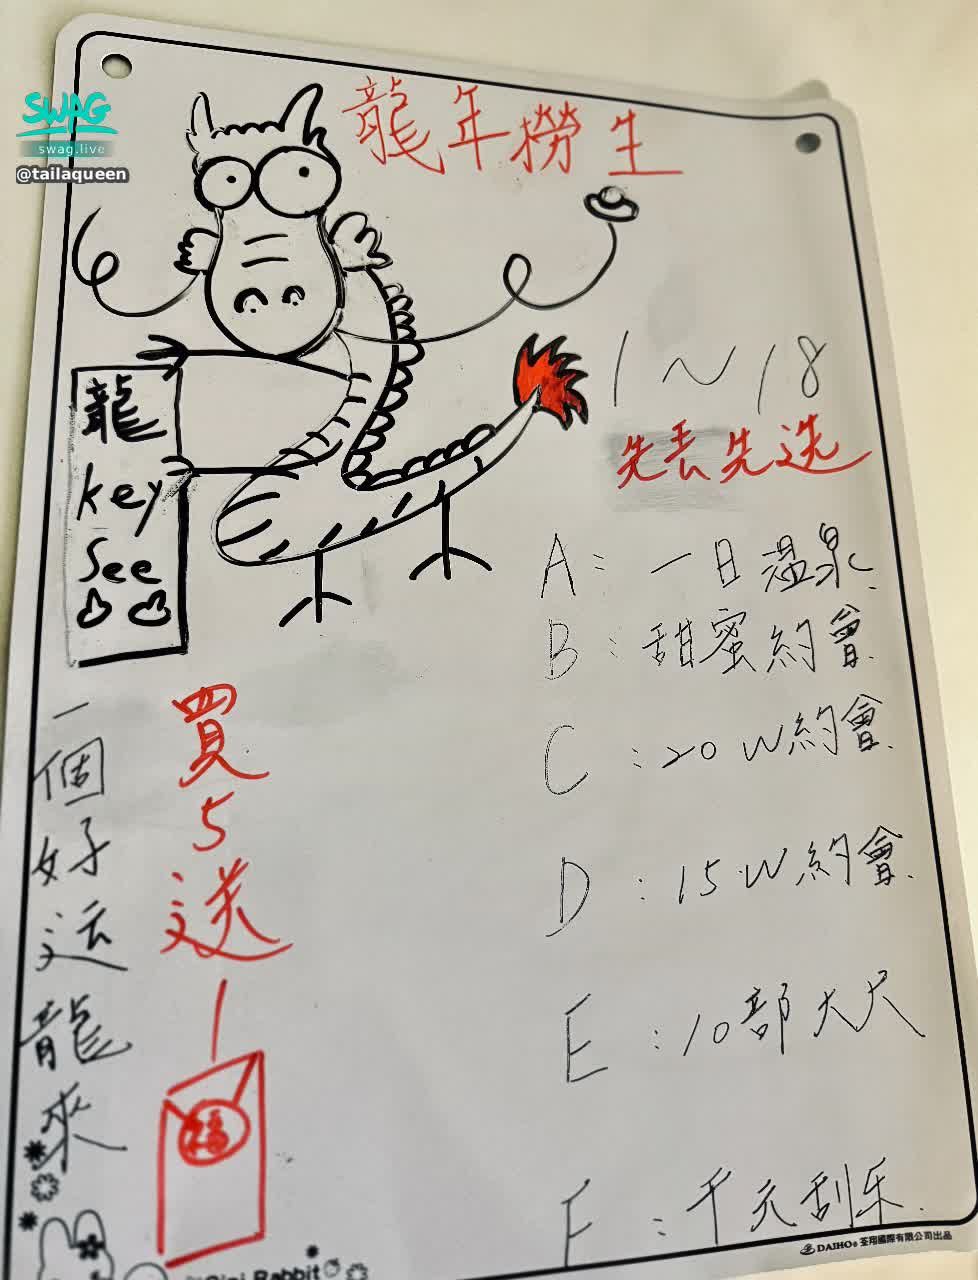 SWAG
swag.live
@tailaqueen
龍年撈生
龍
key
see
1～18
先丟先选
A：一日溫泉
B：甜蜜約會
C：20W約會
D：15W約會
E：10部大尺
F：千元刮乐
一個好运龍來
買5送1
福
DAIHO® 荃翔國際有限公司出品
Rabbit